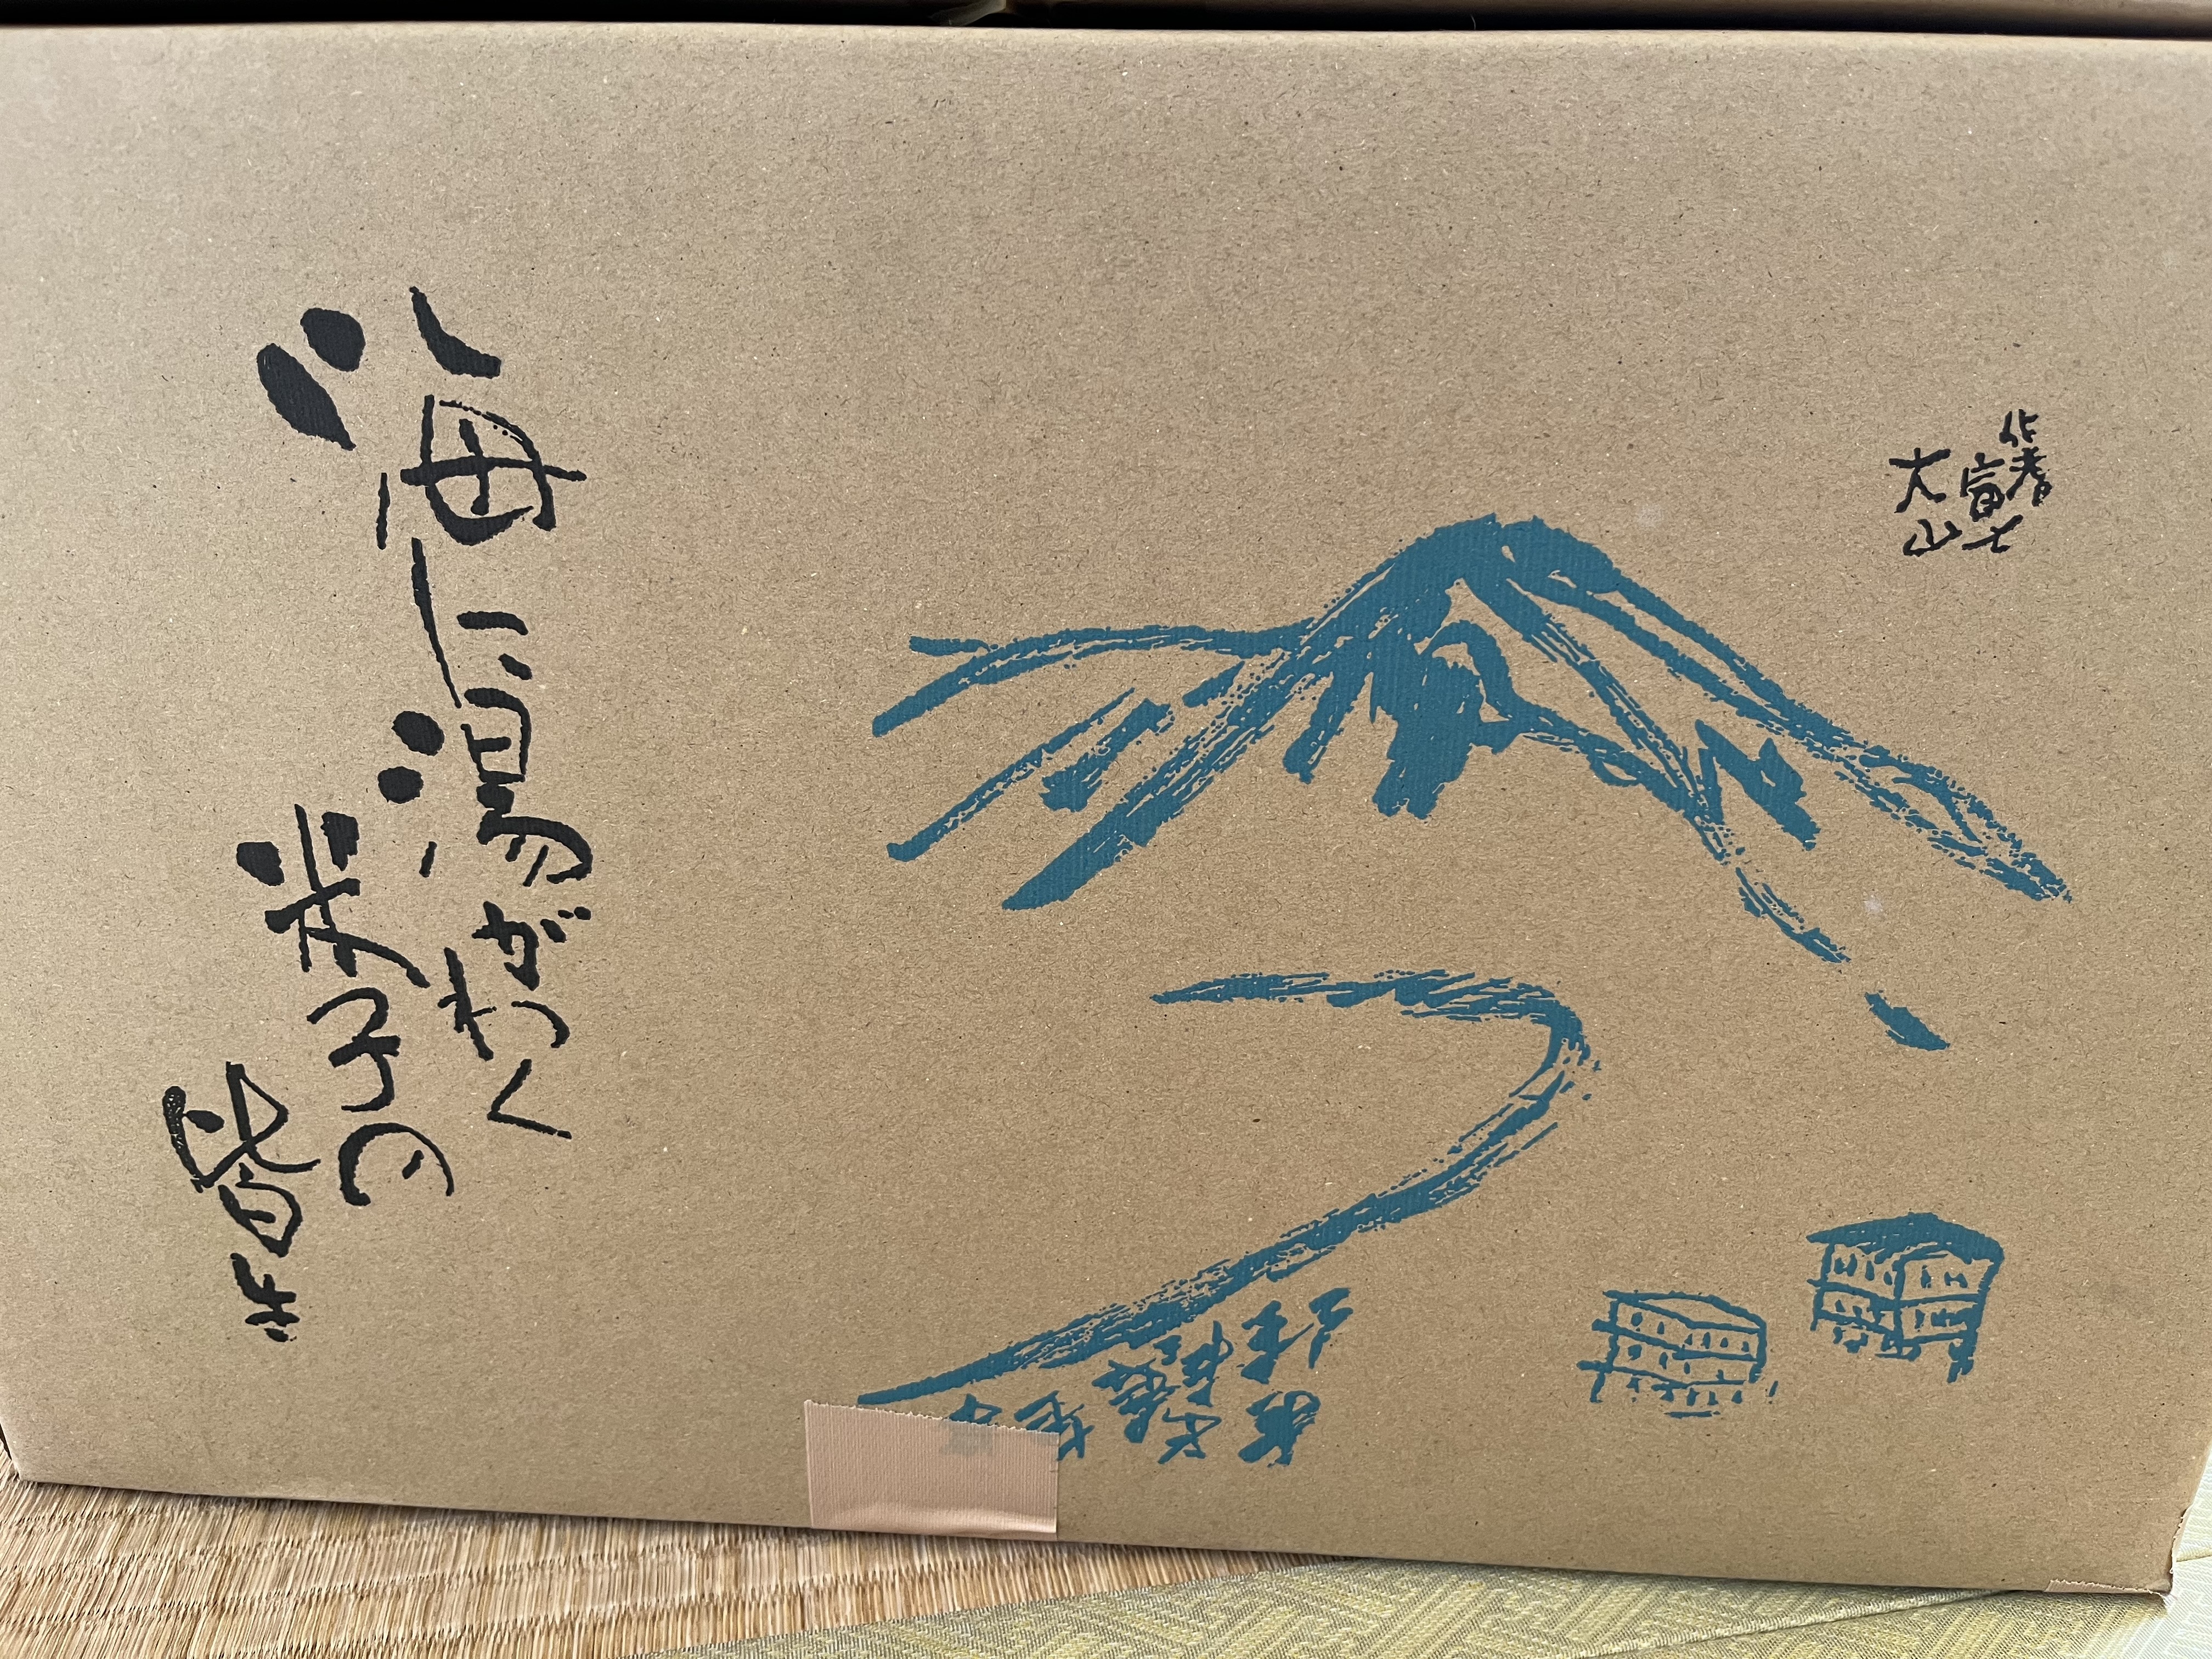 伯耆
富士
大山
海に湯がわく
米子の
皆生